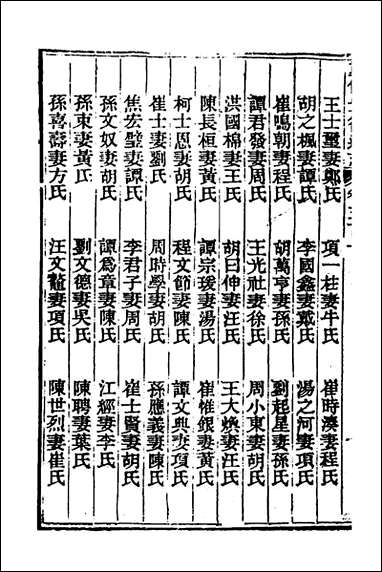 王士璽妻鄭氏　項一柱妻牛氏　崔時湊妻程氏
胡之楓妻譚氏　李國鑫妻戴氏　湯之河妻項氏
崔鳴朝妻程氏　胡萬亨妻孫氏　劉起星妻孫氏
譚君發妻周氏　王光社妻徐氏　周小東妻胡氏
洪國棉妻王氏　胡曰伸妻汪氏　王大煥妻汪氏
陳長桓妻黃氏　譚宗瑗妻湯氏　崔惟銀妻黃氏
柯士恩妻胡氏　程文節妻陳氏　譚文典妻項氏
崔士妻劉氏　周時學妻胡氏　孫應義妻陳氏
焦宏璧妻譚氏　李君子妻周氏　崔士賢妻胡氏
孫文奴妻胡氏　譚爲章妻陳氏　江經妻李氏
孫東妻黃氏　劉文德妻吳氏　陳聘妻葉氏
孫喜壽妻方氏　汪文鼇妻項氏　陳世烈妻崔氏